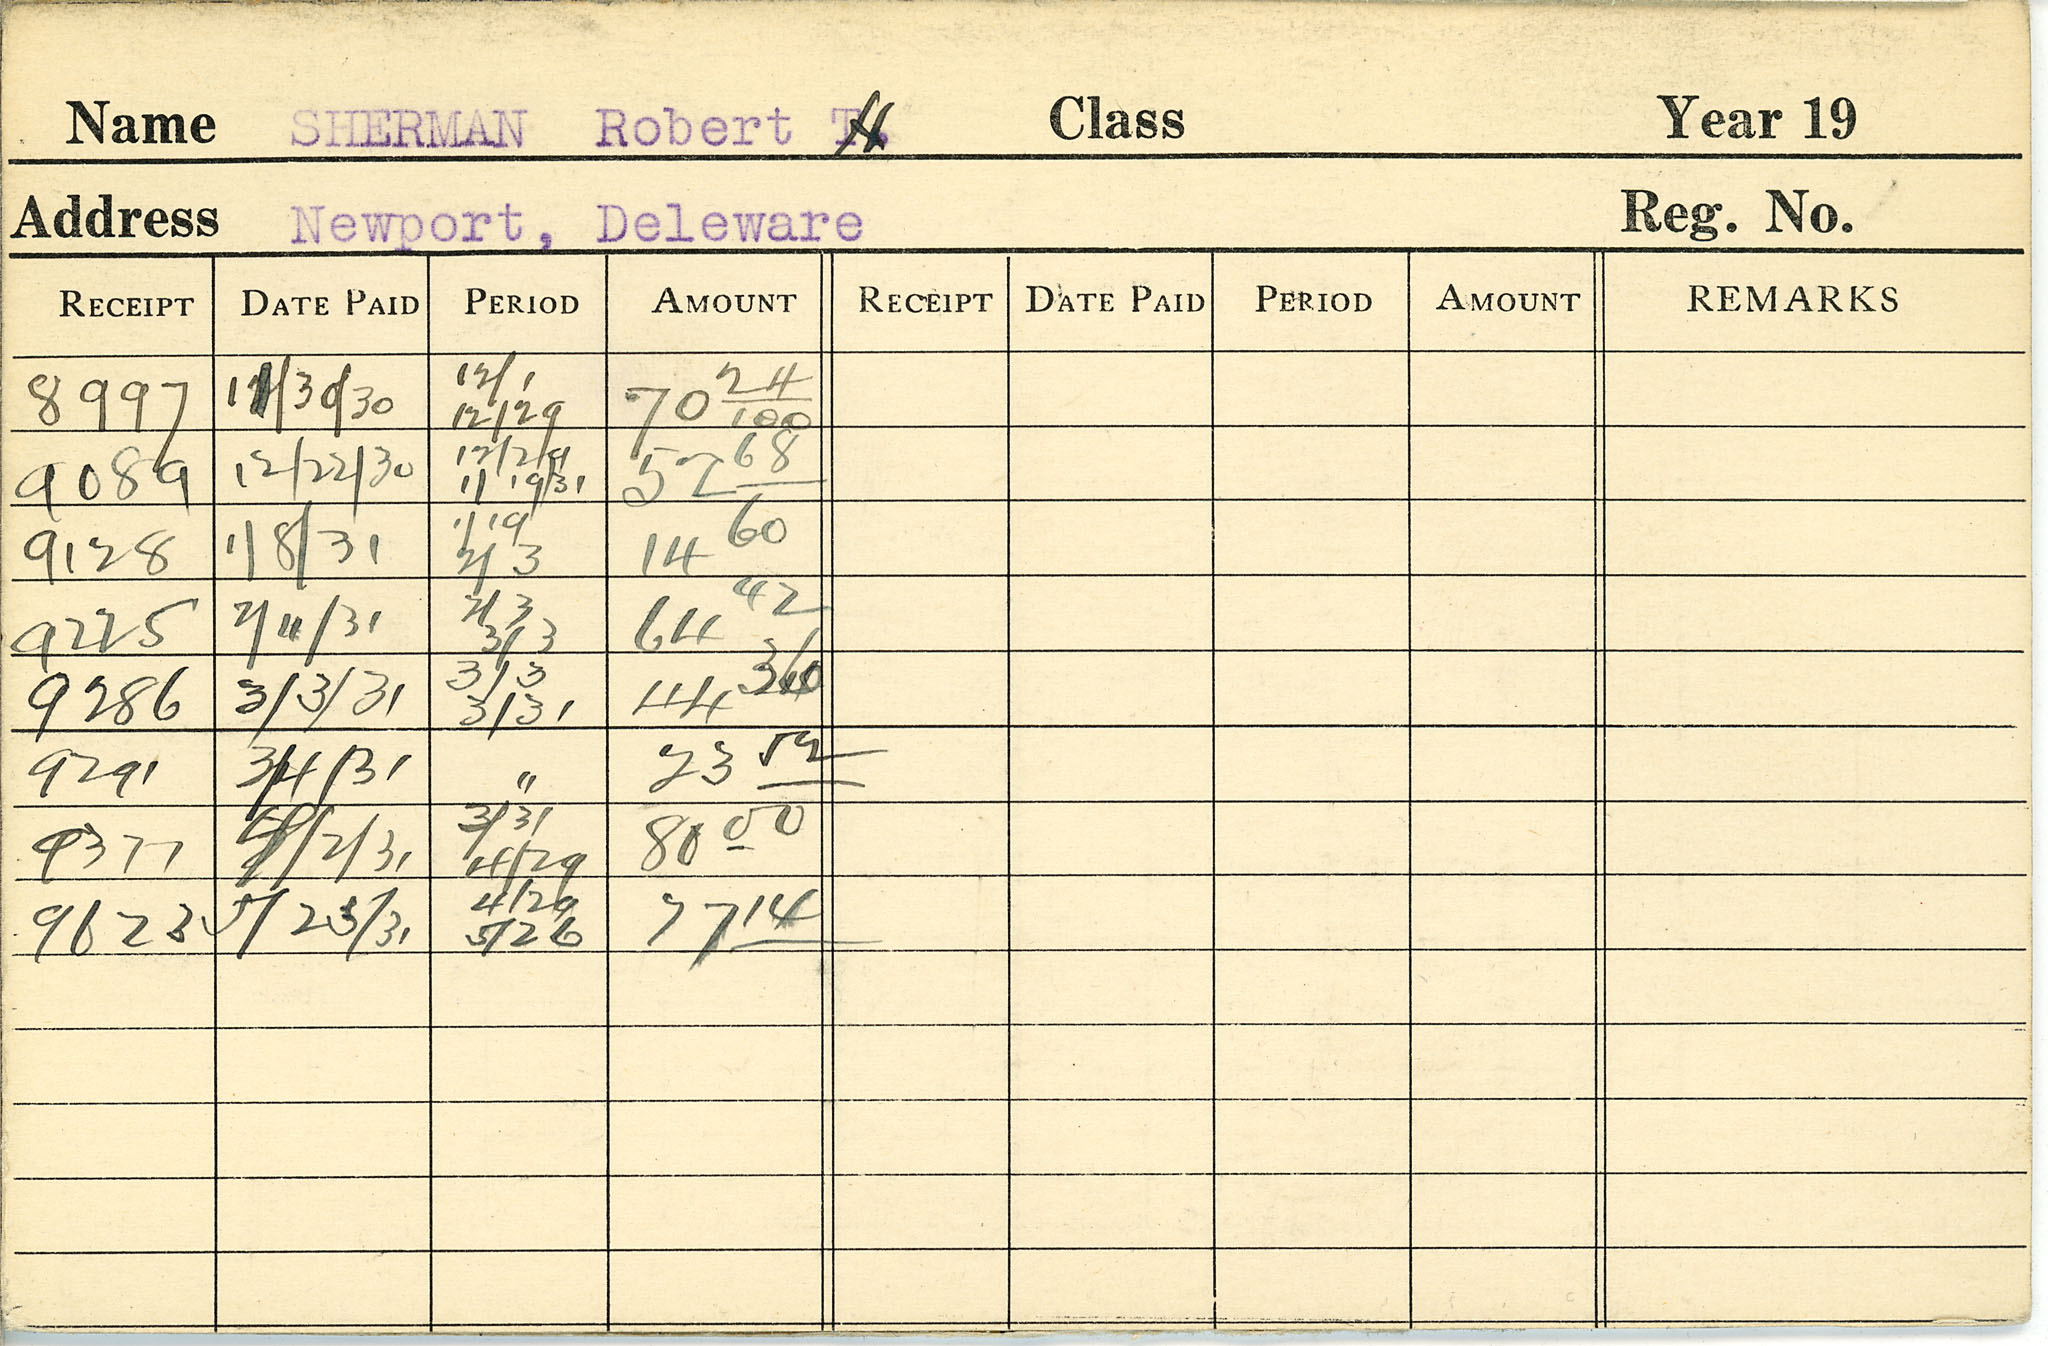 Name SHERMAN Robert H Class Year 19
Address Newport, Deleware Reg. No.
RECEIPT DATE PAID PERIOD AMOUNT RECEIPT DATE PAID PERIOD AMOUNT REMARKS
8997 11/30/30 12/1 12/29 70 24/100
9089 12/22/30 12/29 1/19/31 52 68
9128 1/8/31 1/19 2/3 14 60
9225 2/11/31 2/3 3/3 64 42
9286 3/3/31 3/3 3/31 44
9291 3/4/31 " 23 52
9377 /2/31 3/31 4/29 80 00
9623 5/23/31 4/29 5/26 77 14